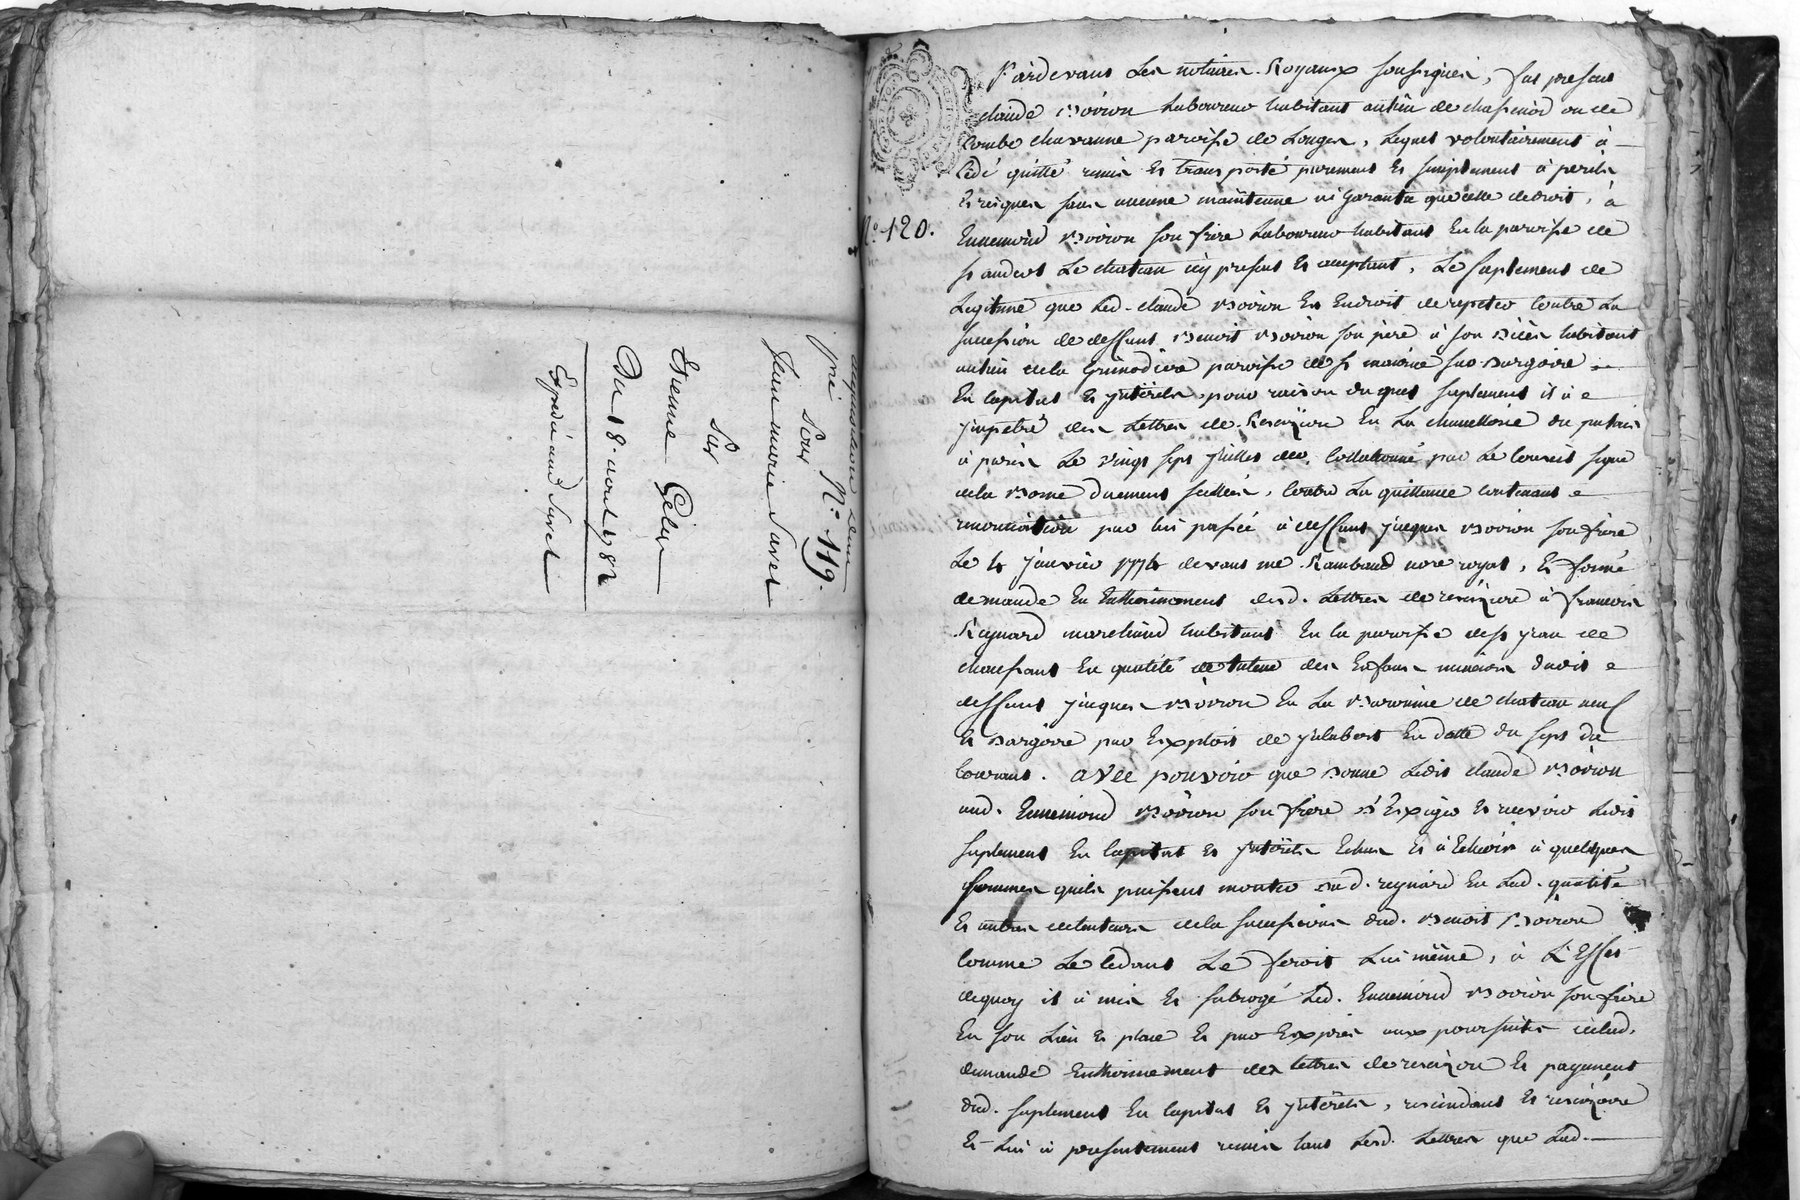 acquisition d'une
pné
N.° 119.
Pour
Jean marie Savel
Sur
Etienne Gelex
Du 18. aout 1782
Expedié aud Savel
N.° 120.
Pardevant Les notaires Royaux soussignés, fut present
claude Boiron Laboureur habitant au lieu de chassenod ou de
Combe chavanne paroisse de Longes, Lequel volontairement à
Cédé quitté remis Et transporté purement Et simplement à perils
Et risques sans aucune maintenue ni Garantie que celle de droit, à
Ennemond Boiron son frere Laboureur habitant En la paroisse de
st andeol Le chateau icy present Et acceptant, Le suplement de
Legitime que Led. claude Boiron En Endroit de repeter Contre La
succession de deffunt Benoit Boiron son pere à son decès habitant
au lieu de la Grimodiere paroisse de st maurice sur dargoire
En Capital Et interets, pour raison du quel suplement il à
impetré des Lettres de Rescizion En La chancellerie du palais
à paris Le vingt sept juillet der. Collationné par Le Conseil signé
de la Borne duement scellées, Contre La quittance contenant
renonciation par lui passée à deffunt jacques Boiron son frere
Le 4 janvier 1774 devant me. Rambaud nore royal, Et formé
demande En Entherinement desd. Lettres de rescizion à francois
Reynard marchand habitant En la paroisse de st jean de
chaussant En qualité de tuteur des Enfans mineurs dudit
deffunt jacques Boiron En La Baronnie de chateau neuf
Et dargoire par Exploit de jalabert En datte du sept du
Courant. avec pouvoir que donne Ledit claude Boiron
aud. Ennemond Boiron son frere d'Exiger Et recevoir Ledit
suplement En Capital Et interets Echus Et à Echoir à quelques
sommes quils puissent monter dud. reynard En Lad. qualité
Et autres detenteurs de la succession dud. Benoit Boiron
Comme Le Cedant Le feroit Lui même, à L'Effet
dequoy il à mis Et subrogé Led. Ennemond Boiron son frere
En son Lieu Et place Et par Exprès aux poursuites de lad.
demande Entherinement des Lettres de rescizion Et payement
dud. suplement En Capital Et interets, rescindant Et rescizoire
Et Lui à presentement remis tant Lesd. Lettres que Lad.